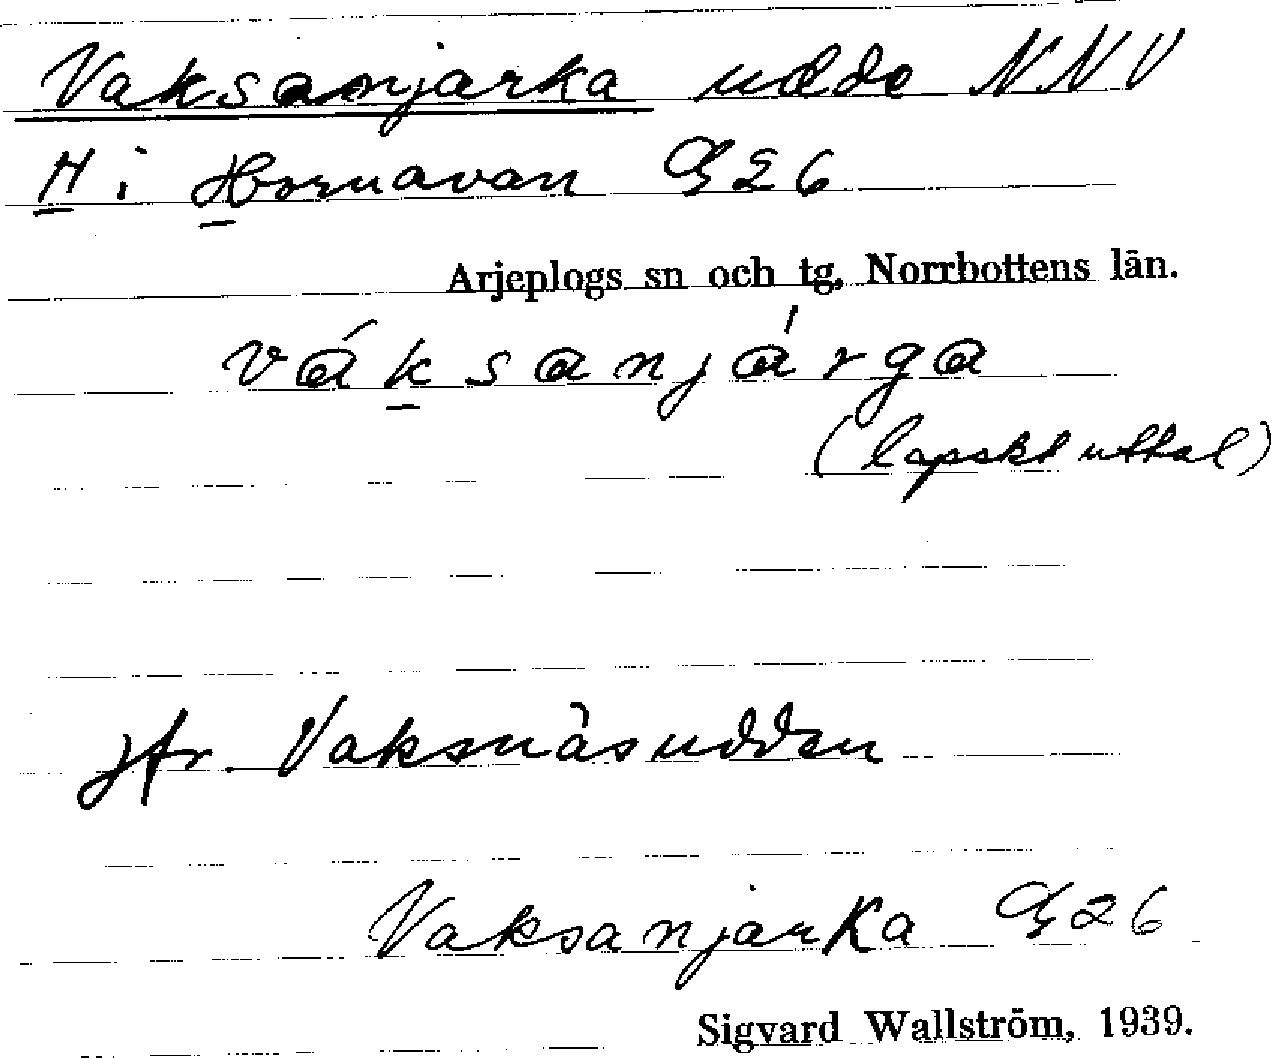 Vaksanjarka udde NNV
H i Hornavan G26
Arjeplogs sn och tg, Norrbottens län.
váksanjárga
(lapskt uttal)
Jfr. Vaksnäsudden
Vaksanjarka G26
Sigvard Wallström, 1939.